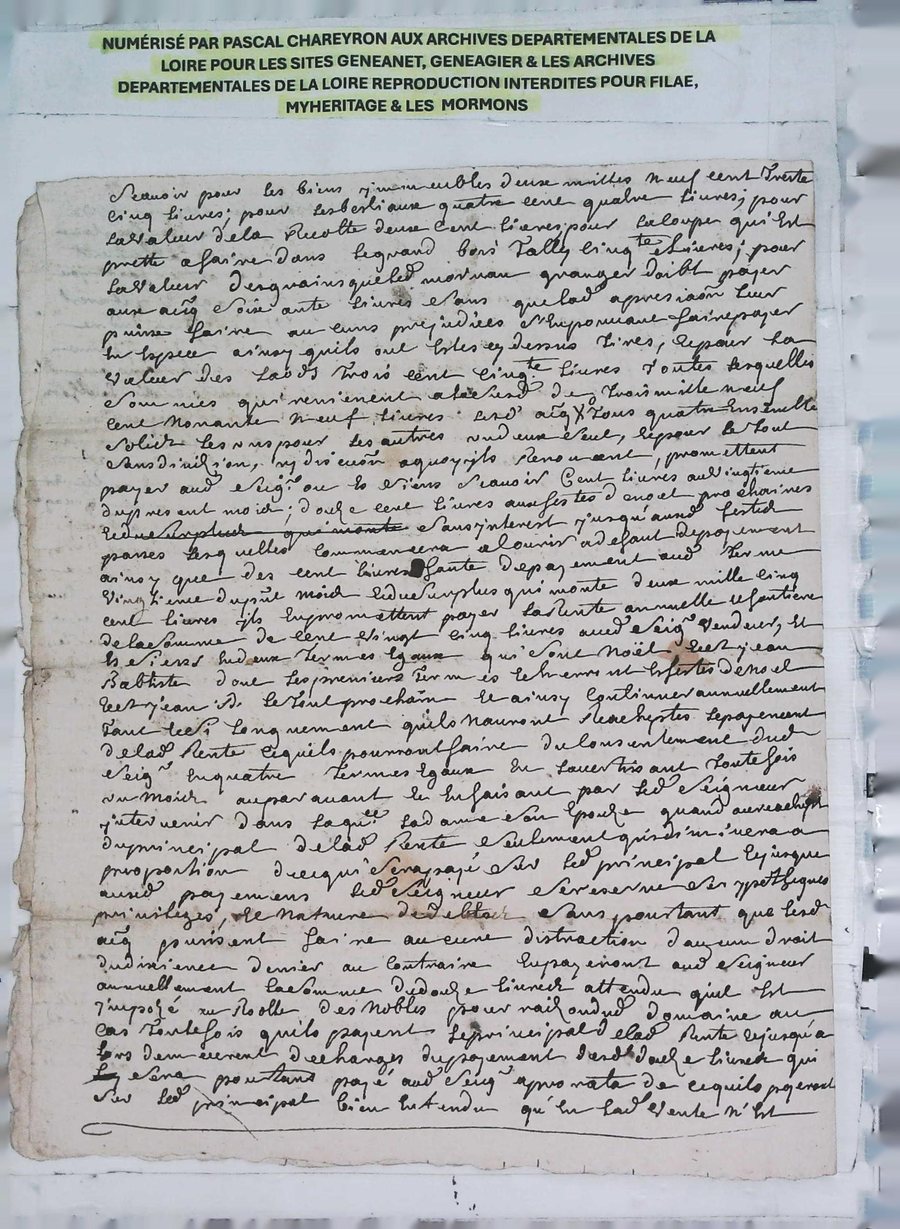 NUMÉRISÉ PAR PASCAL CHAREYRON AUX ARCHIVES DEPARTEMENTALES DE LA
LOIRE POUR LES SITES GENEANET, GENEAGIER & LES ARCHIVES
DEPARTEMENTALES DE LA LOIRE REPRODUCTION INTERDITES POUR FILAE,
MYHERITAGE & LES MORMONS
Scauoir pour les biens ymmeubles deux milles neuf cent Trente
Cinq liures; pour les bestiaux quatre cent quatre liures; pour
la valeur dela Recolte deux Cent liures; pour la coupe qui Est
prette a faire dans le grand bois Tally Cinqte Liures; pour
la valeur des quains que led mornau granger doibt payer
aux acq soixante liures sans que lad apresiaon leur
puisse faire aucuns prejudices s'En pouuant faire payer
En Espece ainsy quils ont Estes cy dessus Tires, Et pour la
valeur des Laods Trois cent Cinqte liures Toutes lesquelles
Sommes qui reuienent a la de Trois mille neuf
cent Nonante Neuf liures lesd acq Tous quatre Ensemble
solid les uns pour les autres un deux seul, Et pour le Tout
sans diuision, ny discuon aquoy ils Renoncent, promettent
payer aud Seigr ou Es siens Scauoir Cent liures au vingtieme
du present mois; douze cent liures aux festes de noel prochaines
Le du surplus qui monte sans ynterest jusqu'aud festes
passes lesquelles Commencera a Courir a defaut de payement
ainsy que des cent liures faute de payement aud Terme
vingtieme du pnt mois Le du surplus qui monte deux mille cinq
cent liures jls En promettent payer la Rente annuelle et fonciere
de la somme de Cent vingt Cinq liures aud Seigr vendeur, Et
Es siens En deux Termes Egaux qui sont Noel Et st jean
Baptiste dont les premiers Termes Escherront Es festes de Noel
Et st jean B. le Tout prochain Et ainsy Continuer annuellement
Tant Et si Longuement quils Nauront Rachptes le payement
de lad Rente Ce quils pourront faire du Consentement dud
Seigr En quatre Termes Egaux En l'auertissant Toutefois
un Mois auparauant Et En faisant par led Seigneur
jnteruenir dans la quee la dame son Epouze quand au rachept
du principal de lad Rente seulement qui diminuera a
proportion de ce qui sera payé sur led principal Et jusque
ausd payemens led Seigneur se reserue ses ypotheques
priuileges, Et Nature de debtes sans pourtant que lesd
acq puissent faire aucune distraction d'aucun droit
du dixieme denier au Contraire En payeront aud Seigneur
annuellement la somme de douze liures attendu quil Est
jmpozé au Rolle des Nobles pour raizon dud domaine au
cas Toutefois quils payent le principal de lad Rente Et jusqu'a
lors demeurent decharges du payement desd douze liures qui
sera pourtant payé aud Seigr a pro rata de ce quils payeront
sur led principal bien Entendu qu'En lad vente n'Est